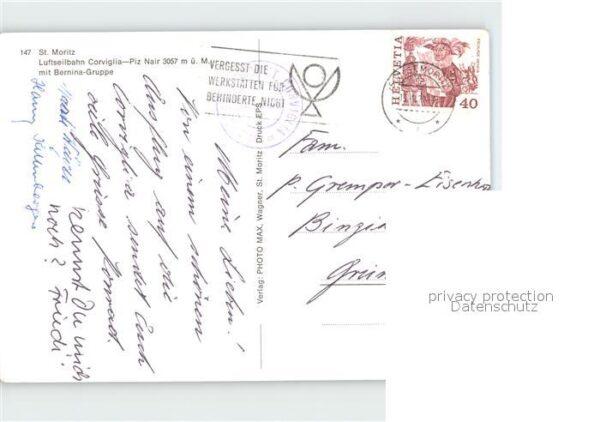 147 St. Moritz
Luftseilbahn Corviglia—Piz Nair 3057 m ü. M.
mit Bernina-Gruppe
VERGESST DIE
WERKSTÄTTEN FÜR
BEHINDERTE NICHT
ST. MORITZ
HELVETIA
40
Meine Lieben!
Von einem schönen
Ausflug auf die
Corviglia sendet Euch
viele Grüsse Konrad.
kennst Du mich
noch? Friedi!
Verlag: PHOTO MAX, Wagner, St. Moritz Druck EPS
Fam.
P. Gremper-
privacy protection
Datenschutz